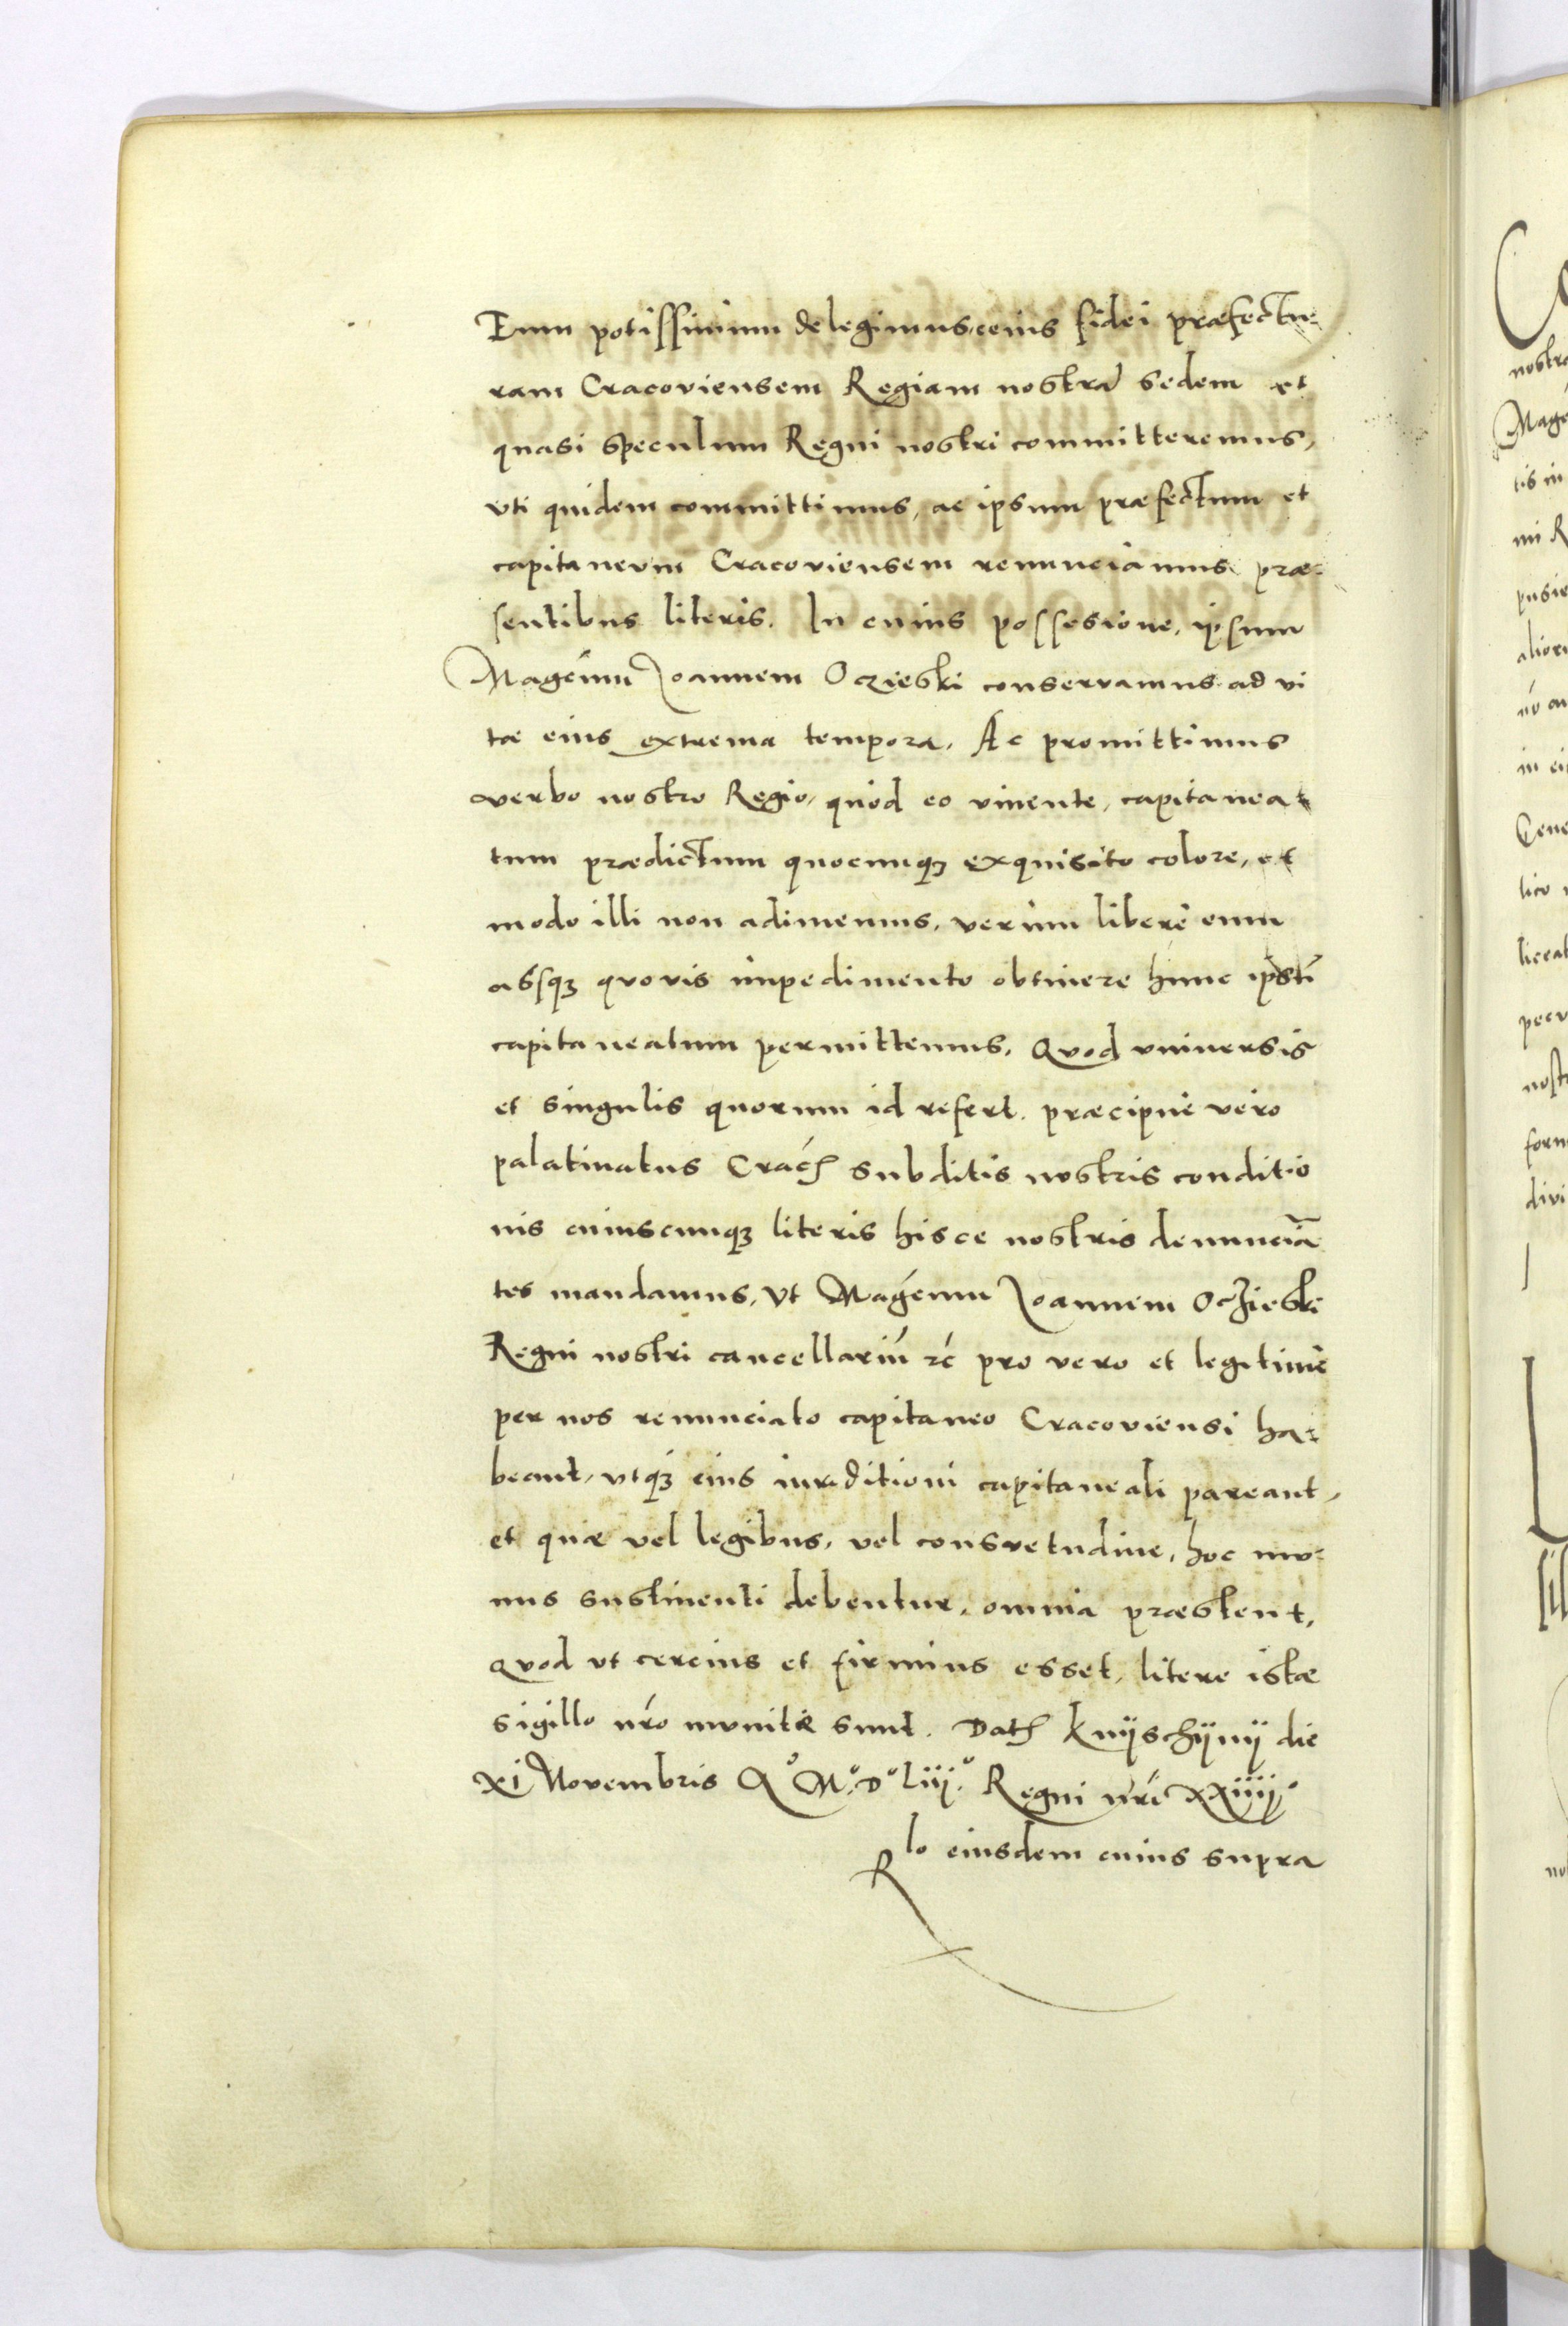 Eum potissimum delegimus, cuius fidei præfectu
ram Cracoviensem Regiam nostrã sedem et
quasi speculum Regni nostri committeremus,
vti quidem committimus, ac ipsum præfectum et
capitaneum Cracoviensem renunciamus præ-
sentibus literis. In cuius possesione, ipsum
Magcũm Joannem Oczieski conservamus ad vi
tæ eius extrema tempora. Ac promittimus
verbo nostro Regio, quòd eo vivente, capitanea-
tum prædictum quocunqꝫ exquisito colore, et
modo illi non adimemus, verùm liberè eum
absqꝫ quovis impedimento obtinere hunc
capitaneatum permittemus. Quod vniversis
et singulis quorum id refert. præcipuè vero
palatinatus Crac subditis nostris conditio
nis cuiuscunqꝫ literis hisce nostris denunciã
tes mandamus, Vt Magcum Joannem Oczieski
Regni nostri cancellariũ ꝛc pro vero et legitimè
per nos renunciato capitaneo Cracoviensi ha-
beant, vtqꝫ eius iurditioni capitaneali pareant,
et quæ vel legibus, vel consvetudine, hoc mu-
nus sustinenti debentur, omnia præstent,
Quod vt cercius et firmius esset, litere istæ
sigillo nr̃o munitæ sunt. Dat Knÿschÿnÿ die
XI Novembris A° M.° D° Liij.° Regni nr̃i XXiiij°
Rlo eiusdem cuius supra
nostra
Mag
tis in
mi R
alior
in ei
lico
nost
form
divi